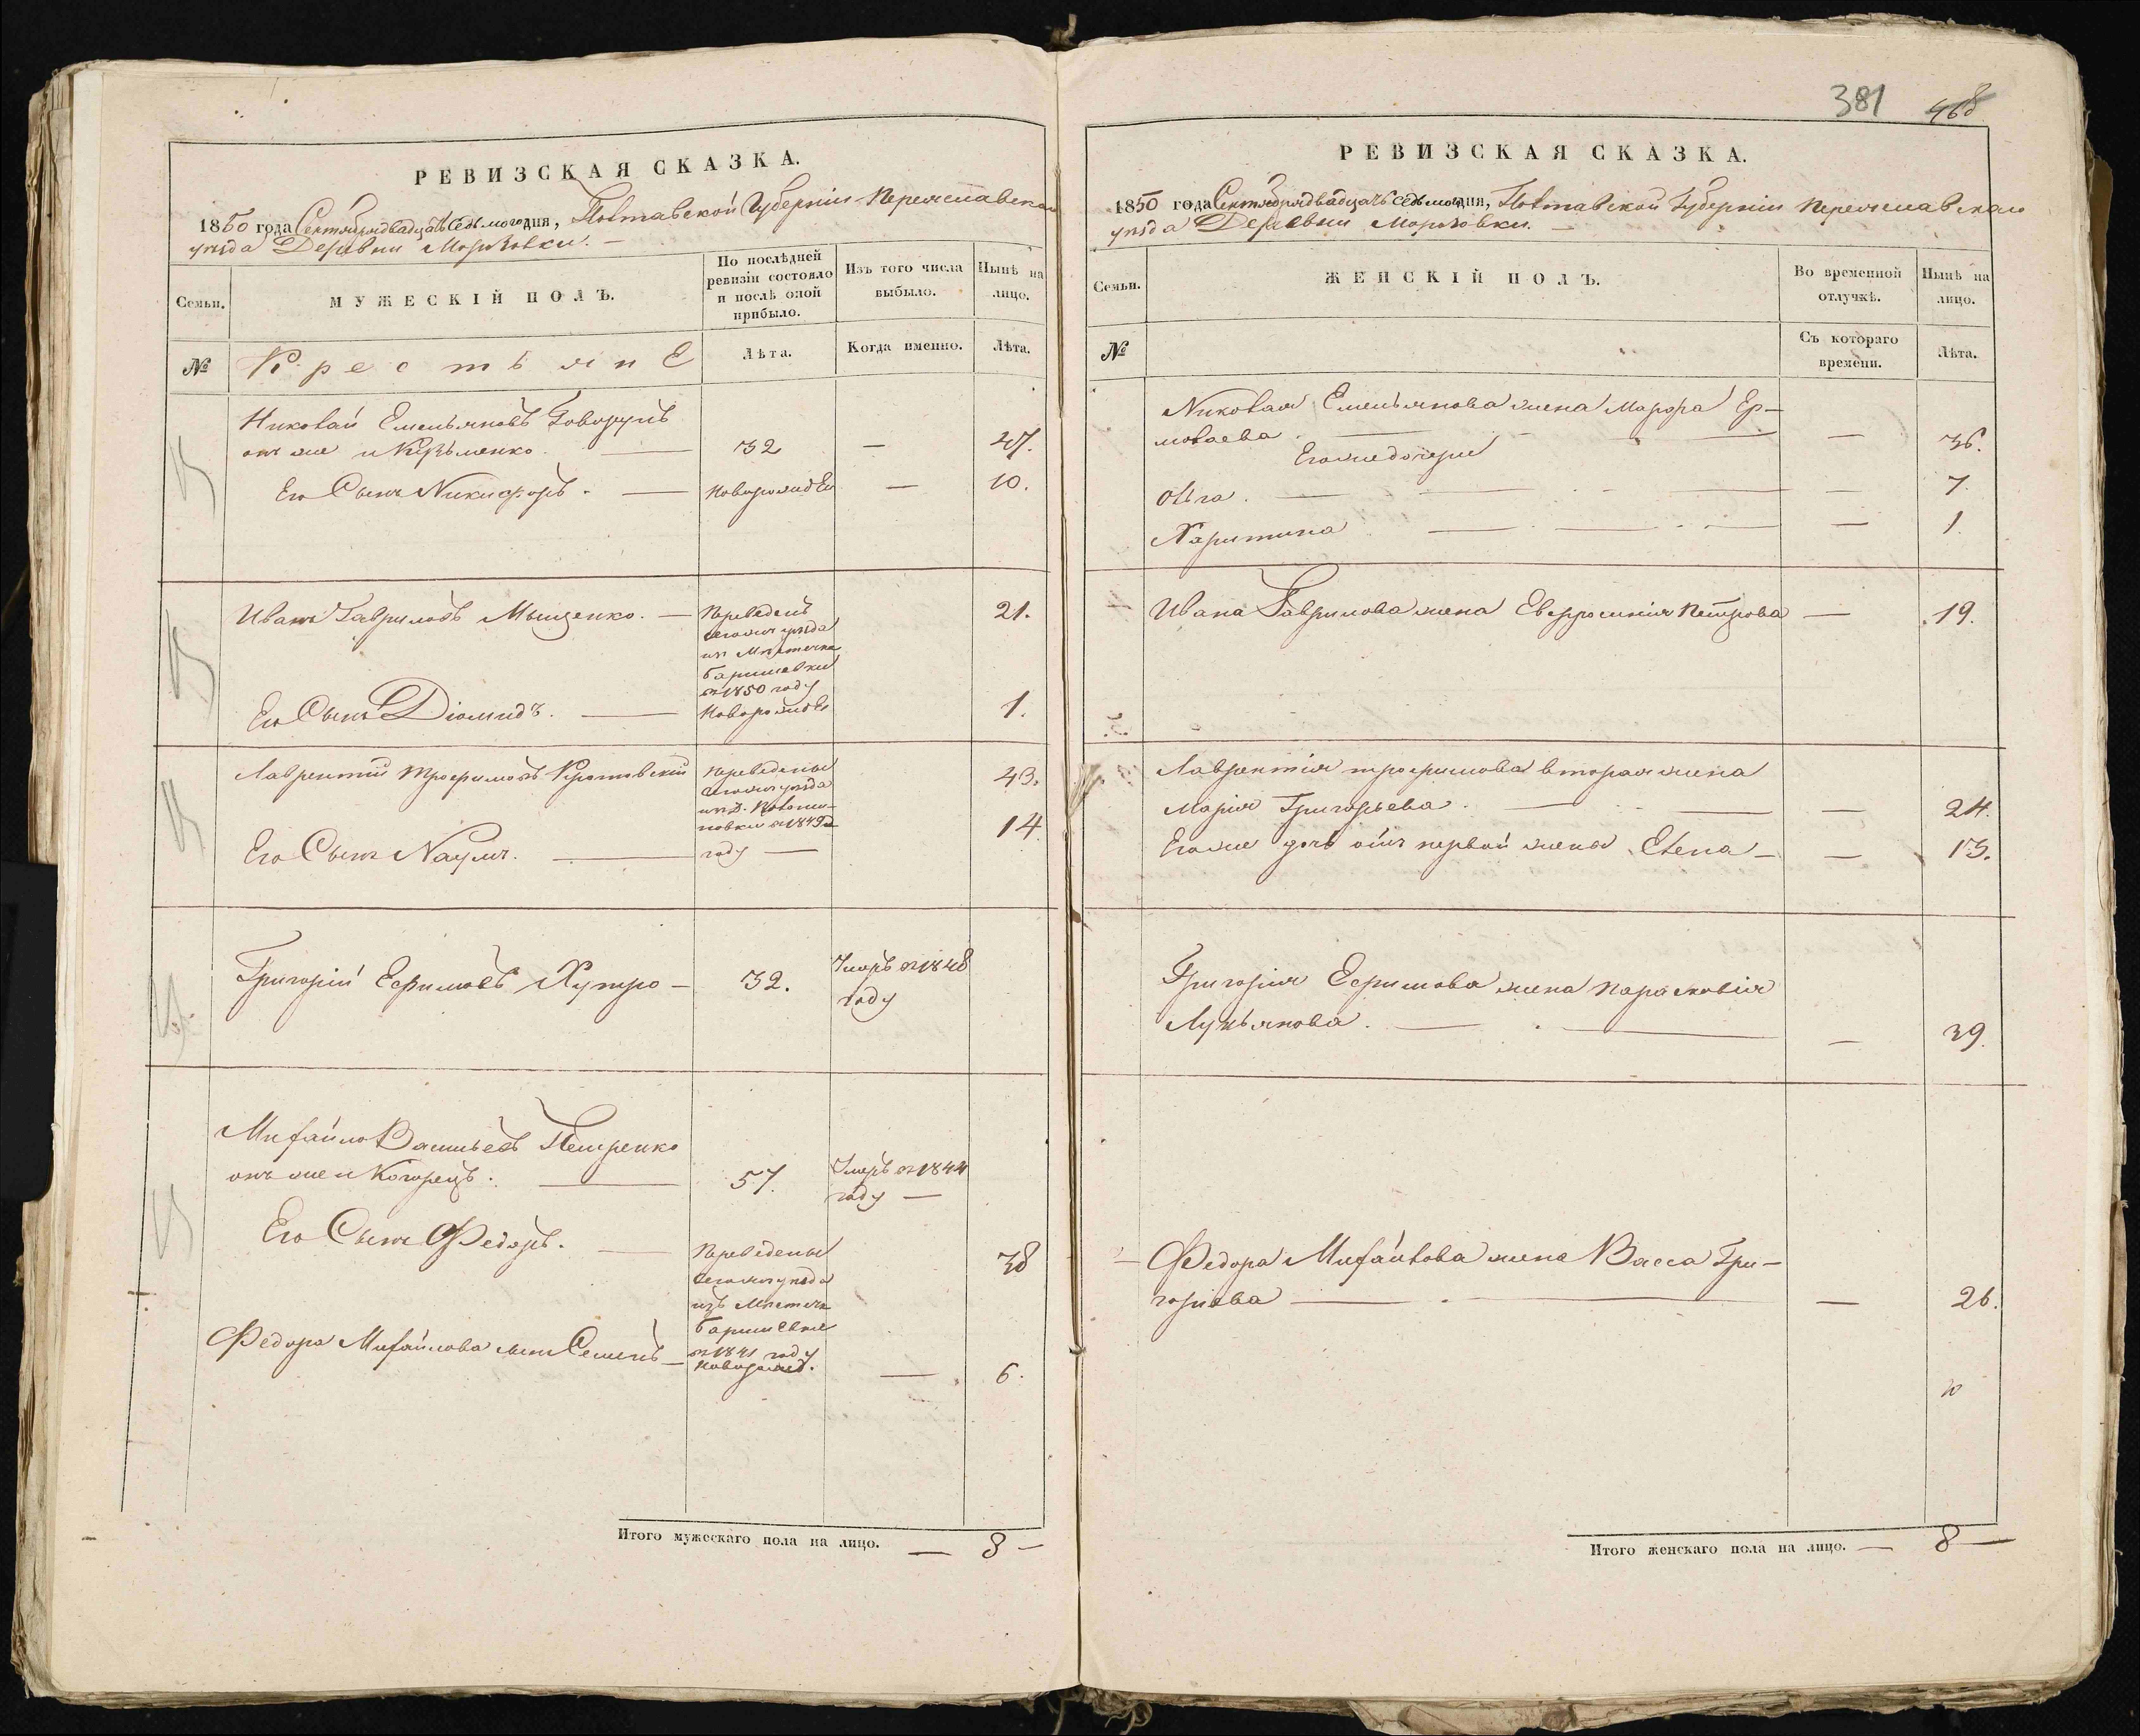 РЕВИЗСКАЯ СКАЗКА.
1850 года Сентября двадцать седьмого дня, Полтавской Губернiи Переяславскаго
уѣзда Деревни Морозовки. —
Семьи.
МУЖЕСКІЙ ПОЛЪ.
По послѣдней
ревизіи состояло
и послѣ оной
прибыло.
Изъ того числа
выбыло.
Нынѣ на
лицо.
№
Крестьяне
Лѣта.
Когда именно.
Лѣта.
Николай Емельяновъ Говорунъ
онъ же и Кузьменко. — 32 — 47.
Его Сынъ Никифоръ. — новорожден — 10.
Иванъ Гавриловъ Мищенко. — Переведенъ 21.
сегожъ уѣзда
изъ Мѣстечка
Баришевки
въ 1850 году
Его Сынъ Діомидъ. — новорожде 1.
Лаврентій Трофимовъ переведены 43.
сегожъ уѣзда
изъ д.
въ 1849м 14.
Его Сынъ Наумъ. — году —
Григорій Ефимовъ Хутро — 32. Умеръ въ 1848
году
Михайло Васильевъ Петренко
онъ же и Когорецъ. — 57. Умеръ въ 1844
году —
Его Сынъ Федоръ. — Переведены 38
сегожъ уѣзда
изъ Мѣстечк
Баришевки
въ 1841 году
Федора Михайлова сынъ Семенъ — новорожд. — 6.
Итого мужескаго пола на лицо. — 8 —
381 468
РЕВИЗСКАЯ СКАЗКА.
1850 года Сентября двадцать седьмого дня, Полтавской Губернiи Переяславскаго
уѣзда Деревни Морозовки. —
Семьи.
ЖЕНСКІЙ ПОЛЪ.
Во временной
отлучкѣ.
Нынѣ на
лицо.
№
Съ котораго
времени.
Лѣта.
Николая Емельянова жена Марфа Ер-
молаева — — 36.
Егоже дочери
Ольга. — — 7.
Харитина — — 1.
Ивана Гаврилова жена Евфросинія Петрова — 19.
Лаврентія трофимова вторая жена
Марія Григорьева. — — 24.
Егоже дочь отъ первой жены Елена — — 13.
Григорія Ефимова жена Парасковія
Лукьянова. — — 39.
Федора Михайлова жена Васса Гри-
горіева — — 26.
Итого женскаго пола на лицо. — 8 —